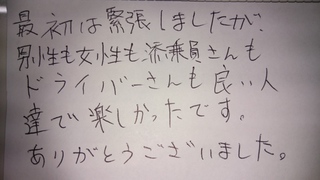 最初は緊張しましたが、
男性も女性も、添乗員さんも
ドライバーさんも良い人
達で楽しかったです。
ありがとうございました。